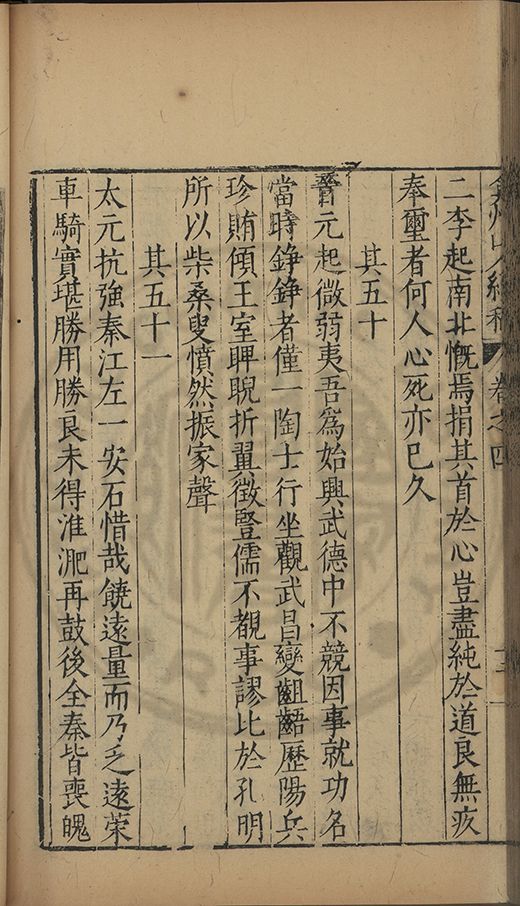 卷之四
二李起南北慨焉捐其首於心豈盡純於道良無疚
奉璽者何人心死亦已久
其五十
晉元起微弱夷吾爲始興武德中不競因事就功名
當時錚錚者僅一陶士行坐觀武昌變齟齬歷陽兵
珍賄傾王室睥睨折翼徵豎儒不覩事謬比於孔明
所以柴桑叟憤然振家聲
其五十一
太元抗強秦江左一安石惜哉饒遠量而乃乏遠策
車騎實堪勝用勝良未得淮淝再鼓後全秦皆喪魄